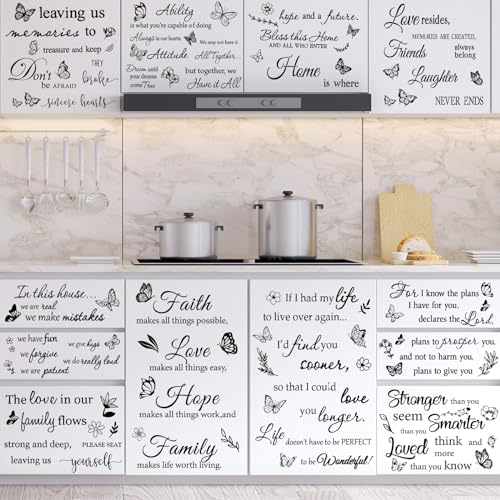 leaving us
memories to
treasure and keep
Don't
be AFRAID
THEY
broke
sincere hearts
Ability
is what you're capable of doing
Always in our hearts.
We may not have it
Attitude
All Together.
Dream until
your dreams
come True
but together, we
Have it All
hope and a future.
Bless this Home
AND ALL WHO ENTER
Home
is where
Love resides,
MEMORIES ARE CREATED,
Friends
always
belong
Laughter
NEVER ENDS
In this house...
we are real
we make mistakes
we have fun
we give hugs
we forgive
we do really loud
we are patient
The love in our
family flows
strong and deep,
leaving us
PLEASE SEAT
yourself
Faith
makes all things possible,
Love
makes all things easy,
Hope
makes all things work,and
Family
makes life worth living.
If I had my life
to live over again...
I'd find you
sooner,
so that I could
love
you
longer.
Life
doesn't have to be PERFECT
to be Wonderful!
For I know the plans
I have for you.
declares the Lord.
plans to prosper you.
and not to harm you.
plans to give you
Stronger than you
seem
Smarter
than you
think and
Loved more
than you know